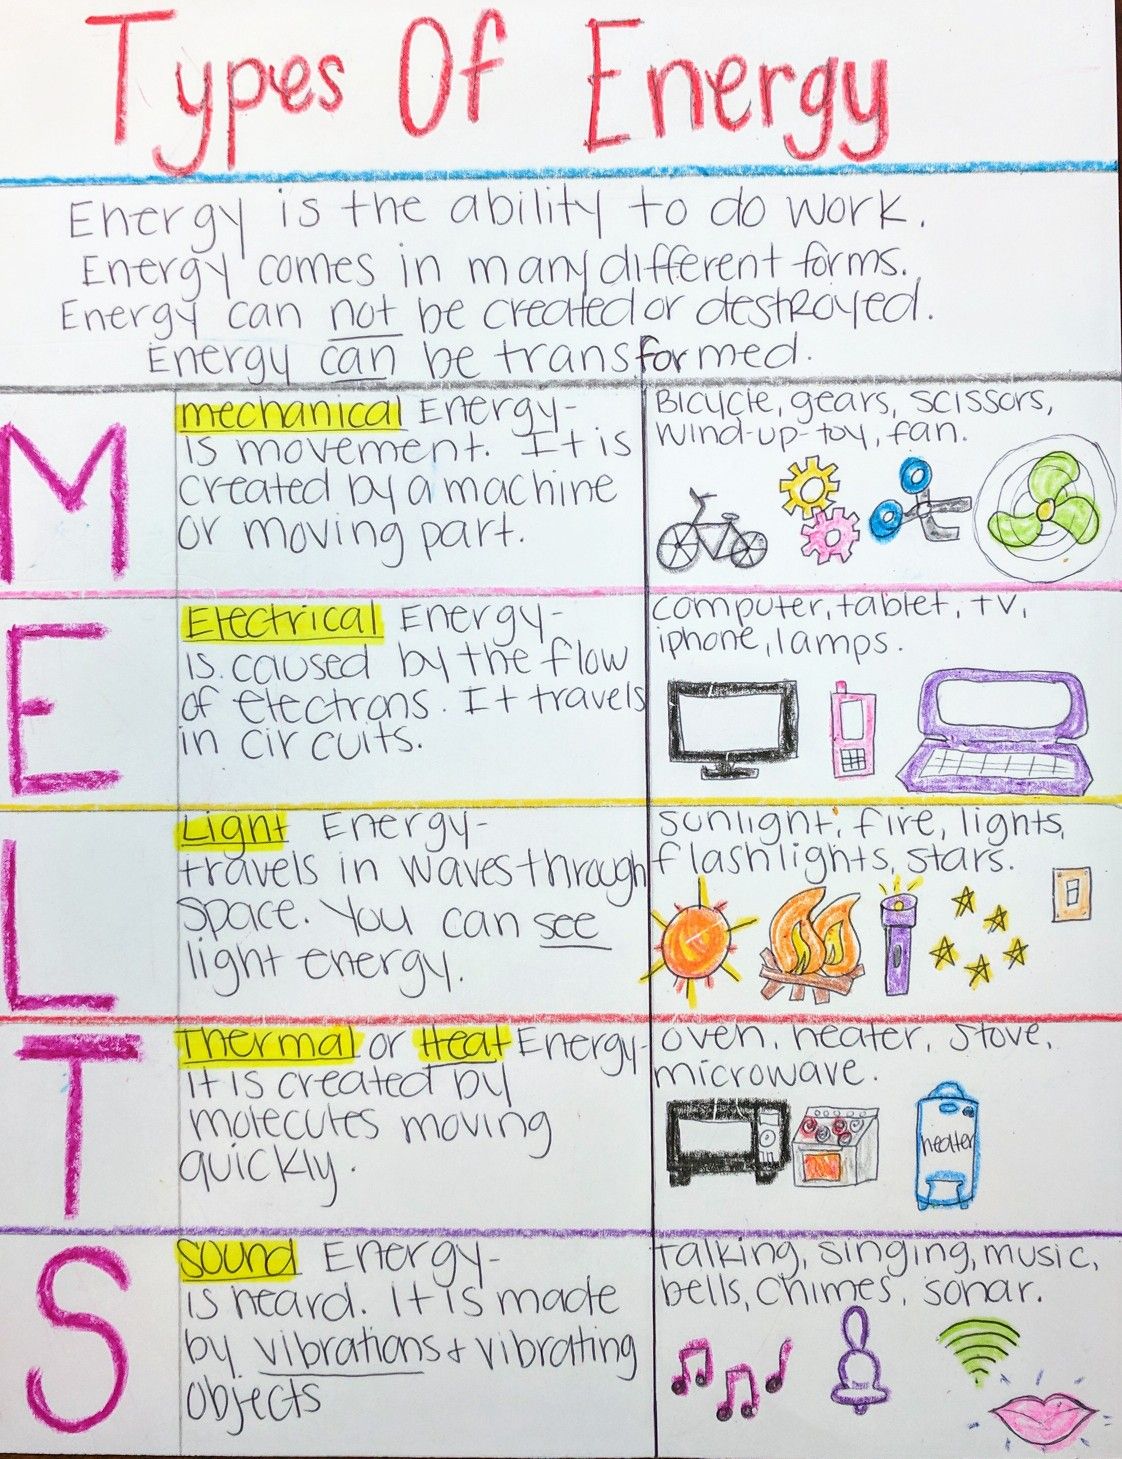 Types Of Energy
Energy is the ability to do work.
Energy comes in many different forms.
Energy can not be created or destroyed.
Energy can be transformed.
M
mechanical Energy-
is movement. It is
created by a machine
or moving part.
Bicycle, gears, scissors,
wind-up-toy, fan.
E
Electrical Energy-
is caused by the flow
of electrons. It travels
in circuits.
computer, tablet, TV,
iphone, lamps.
L
Light Energy-
travels in waves through
space. You can see
light energy.
sunlight, fire, lights,
flashlights, stars.
T
Thermal or Heat Energy-
it is created by
molecules moving
quickly.
oven, heater, stove,
microwave.
heater
S
Sound Energy-
is heard. It is made
by vibrations & vibrating
objects
talking, singing, music,
bells, chimes, sonar.